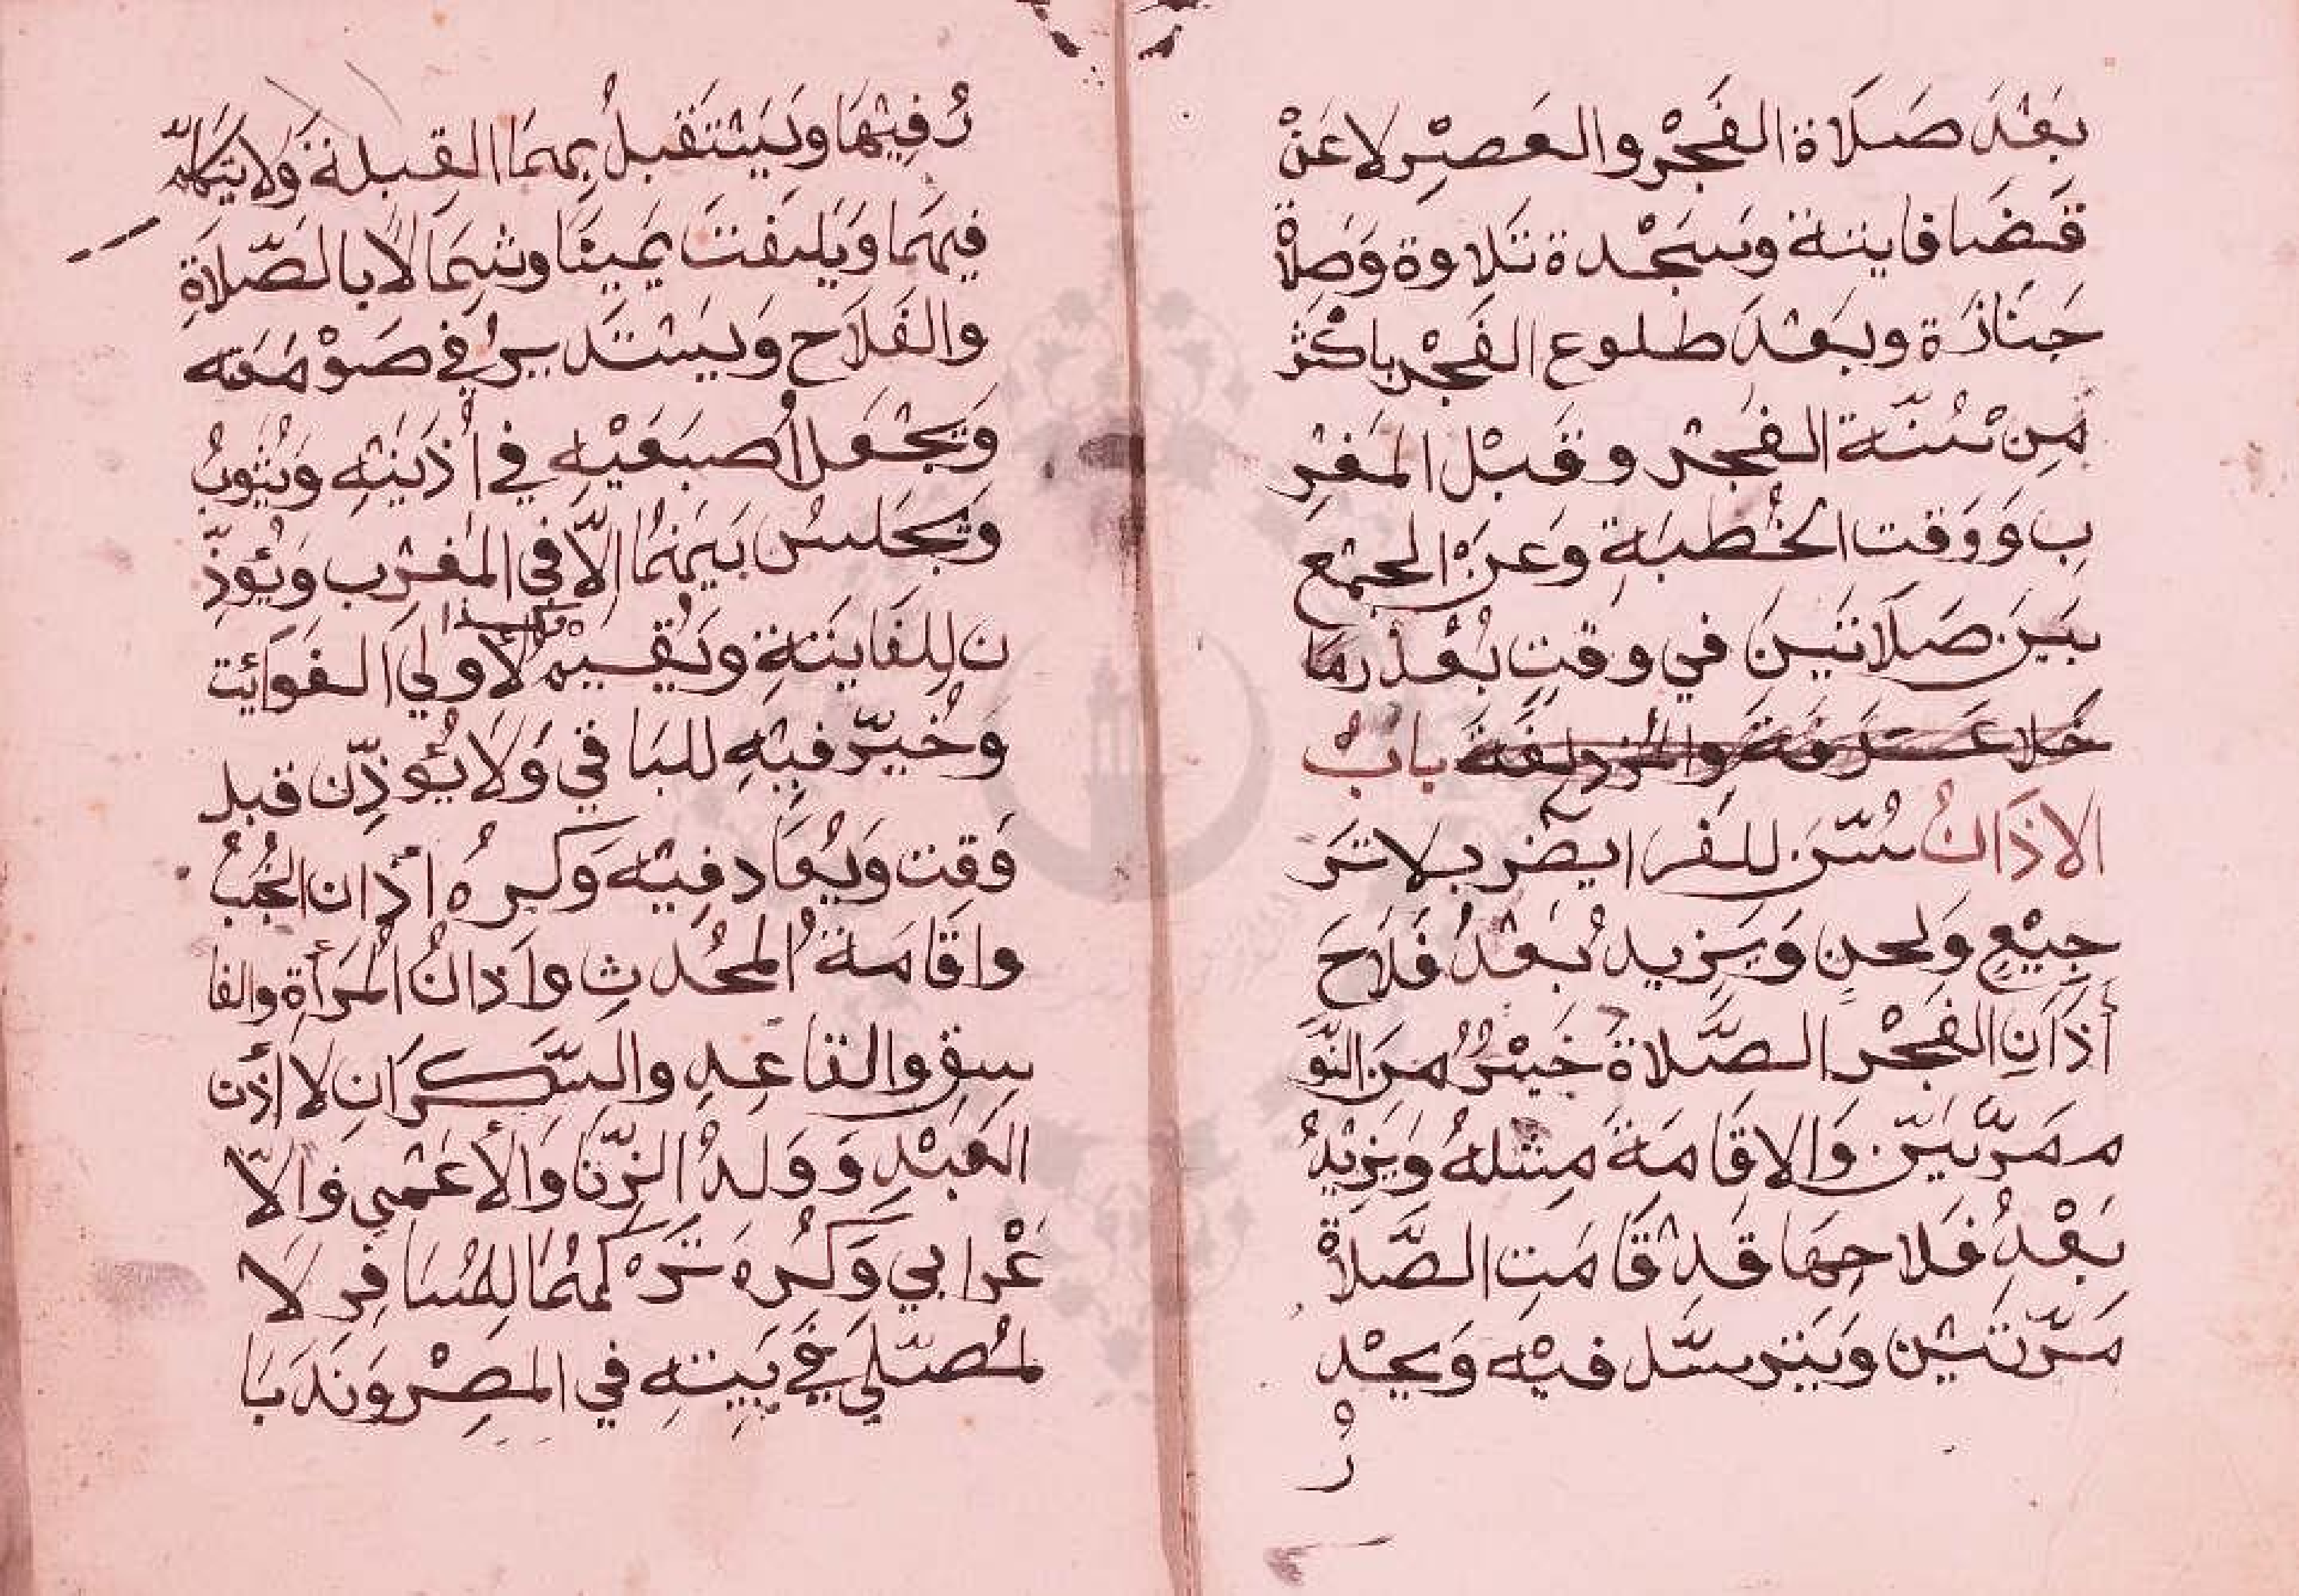 بَعْدَ صَلَاةِ الفَجْرِ والعَصْرِ لا عَنْ
قَضَا فايتة وسَجْدة تَلاوة وَصلاة
جَنَازَة وبَعْدَ طلوع الفَجْر باكْثَر
مِن سُنَّة الفَجْر وقَبْل المَغْرِ
بِ وَوَقت الخُطبَةِ وَعَن الجمْع
بَيْنَ صَلَاتَيْنَ في وقتٍ بُعْذر مَا
خَلا عَرَفَةَ والمُزدلفَة بابُ
الاذَانُ سُنَّ للفَرايض بلا تَر
جِيْعٍ وَلحنٍ وَيَزيدُ بَعْدُ فَلَاحَ
أذَانِ الفَجْر الصَّلاة خَيْرُ مِنَ النَّو
م مَرَّتيَنّ وَالاقَامَة مِثلهُ وَيَزِيْدُ
بَعْدِ فَلاحِهَا قَدْ قَامَتِ الصَّلاةْ
مَرّتَيْن وَيَترسَّل فيْه وَيحْد
رُ
رُ فِيْهَا وَيَسْتَقبلُ بِهمَا القِبلة وَلا يتكلّم
فِيهَما وَيَلتفتَ يَمِينًا وشِمَالًا بالصَّلاةِ
والفَلَاح وَيَسْتَديرُ في صَوْمَعَته
وَيَجْعَل أُصبَعَيْهِ في أُذنَيْهِ وَيُثَوبُ
وَيَجَلسُ بَيْنهُمَا إلّا فِي المَغْرَب وَيُؤذِّ
ن لِلفَايتَةِ وَيُقيْمُ لأولي الفَوَايت
وَكذا
وَخُيّرَ فيْهِ للبَاقي وَلَا يُؤذِّن قبل
وَقِت وَيُعَاد فِيْه وَكرهُ أذان الجُنُبْ
واقَامَة المُحْدثِ واَذانُ المَرأةِ والفا
سِقِ والقاعِدِ والسَّكرَانِ لا أذن
العَبْدِ وَوَلدُ الزِّنَا وَالأعْمىِ والا
عْرابي وَكُرهَ تَرْكهُمَا لِلمُسَافِر لَا
لمُصَلّي فيَ بَيِتهِ في المصِرْ وَنَدَبَا